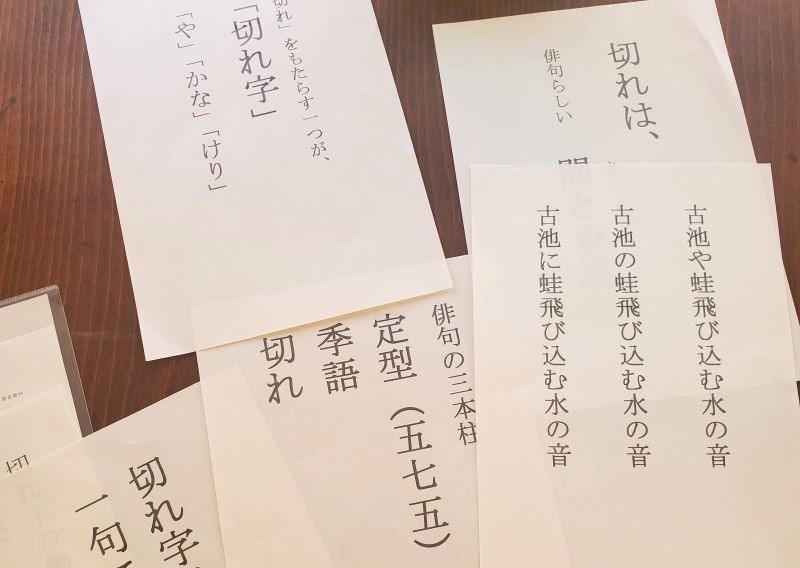 切れ」をもたらす一つが、
「切れ字」
「や」「かな」「けり」
切れは、
俳句らしい
間と
古池や蛙飛び込む水の音
古池の蛙飛び込む水の音
古池に蛙飛び込む水の音
俳句の三本柱
定型（五七五）
季語
切れ
切れ字
一句